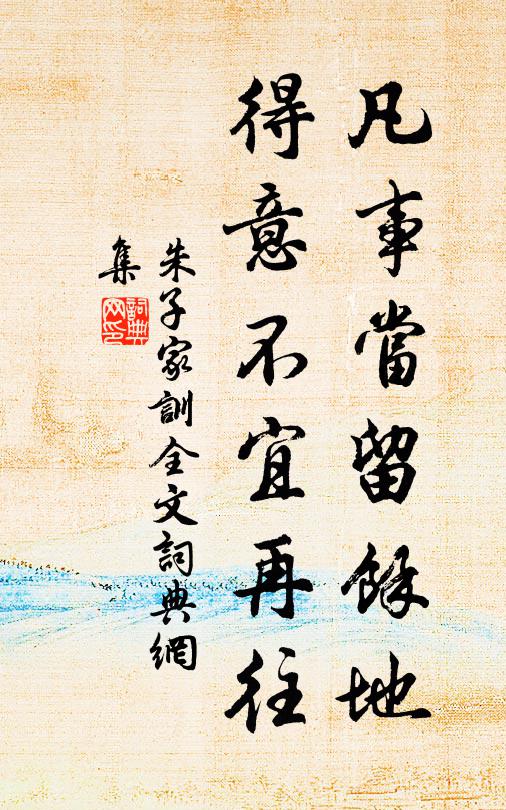 凡事當留餘地
得意不宜再往
朱子家訓全文詞典網
集
詞典
网印